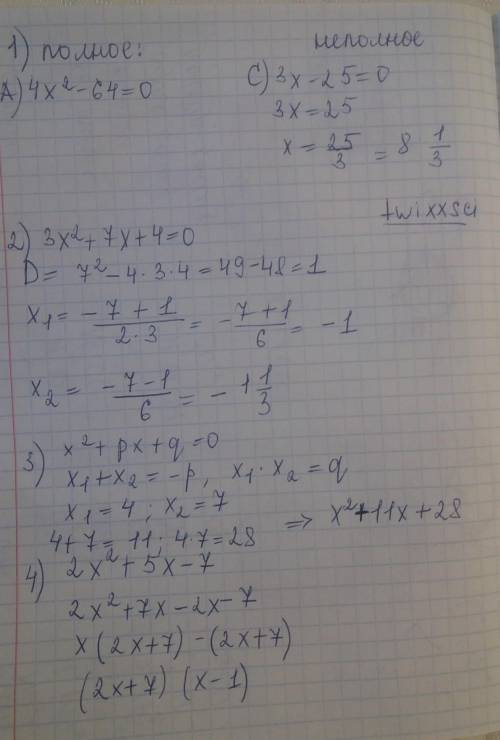 1) полное: неполное
А) 4x² - 64 = 0 C) 3x - 25 = 0
3x = 25
x = 25/3 = 8 1/3
twixxsci
2) 3x² + 7x + 4 = 0
D = 7² - 4·3·4 = 49 - 48 = 1
x₁ = (-7 + 1)/(2·3) = -(7 + 1)/6 = -1
x₂ = (-7 - 1)/6 = -1 1/3
3) x² + px + q = 0
x₁ + x₂ = -p, x₁ · x₂ = q
x₁ = 4; x₂ = 7
4 + 7 = 11; 4·7 = 28 => x² + 11x + 28
4) 2x² + 5x - 7
2x² + 7x - 2x - 7
x(2x + 7) - (2x + 7)
(2x + 7) (x - 1)